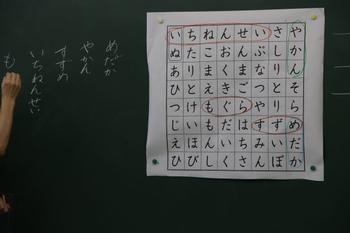 めだか
やかん
すずめ
いちねんせい
も
いちねんせいさや
ぬたこおんぶしか
ありまくまなりん
ひとえきごつとそ
つけもぐらやりら
じいもだはすずめ
えほんいちみいだ
ひびしくさんぽか